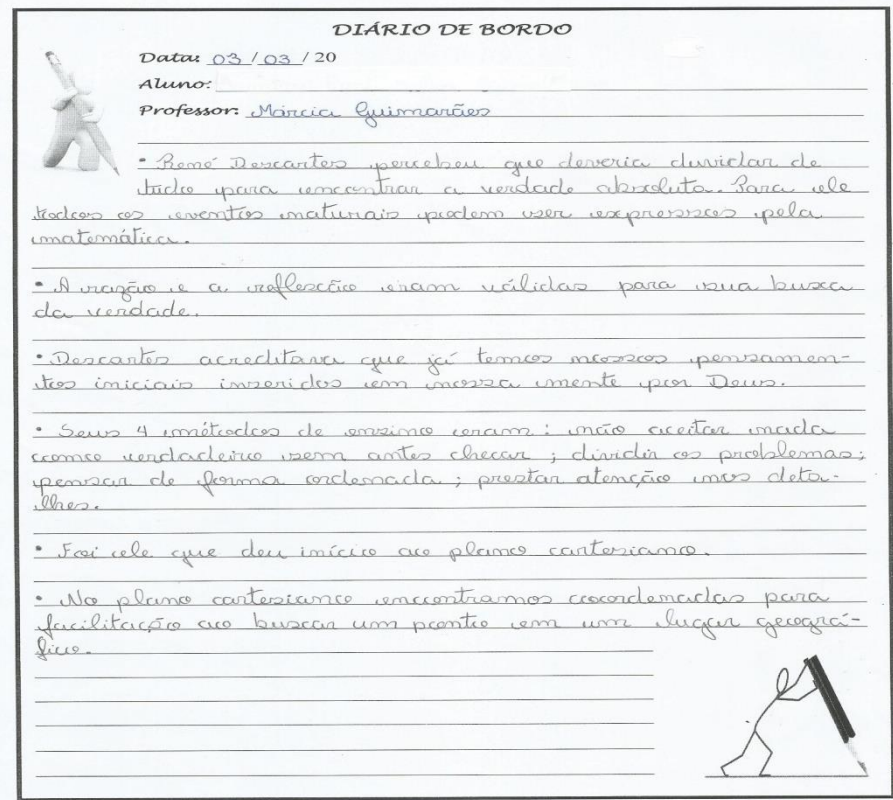 DIÁRIO DE BORDO
Data: 03 / 03 / 20
Aluno:
Professor: Márcia Guimarães
• René Descartes percebeu que deveria duvidar de
tudo para encontrar a verdade absoluta. Para ele
todos os eventos naturais podem ser expressos pela
matemática.
• A razão e a reflexão eram válidas para sua busca
da verdade.
• Descartes acreditava que já temos nossos pensamen-
tos iniciais inseridos em nossa mente por Deus.
• Seus 4 métodos de ensino eram: não aceitar nada
como verdadeiro sem antes checar; dividir os problemas;
pensar de forma ordenada; prestar atenção nos deta-
lhes.
• Foi ele que deu início ao plano cartesiano.
• No plano cartesiano encontramos coordenadas para
facilitação ao buscar um ponto em um lugar geográ-
fico.